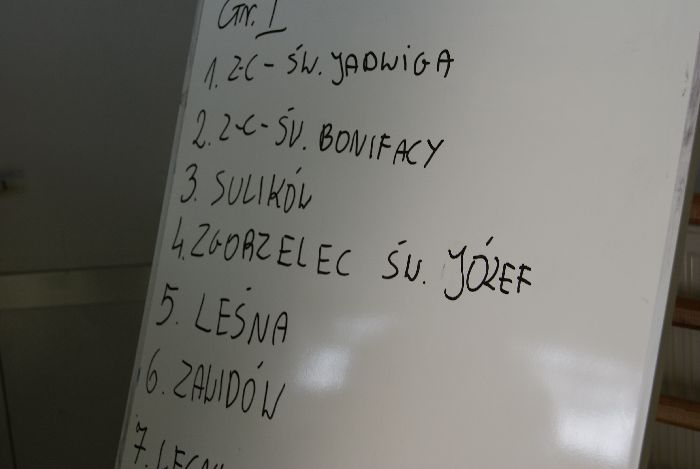 Gr. I
1. Z-C - ŚW. JADWIGA
2. Z-C - ŚW. BONIFACY
3. SULIKÓW
4. ZGORZELEC ŚW. JÓZEF
5. LEŚNA
6. ZAWIDÓW
7.